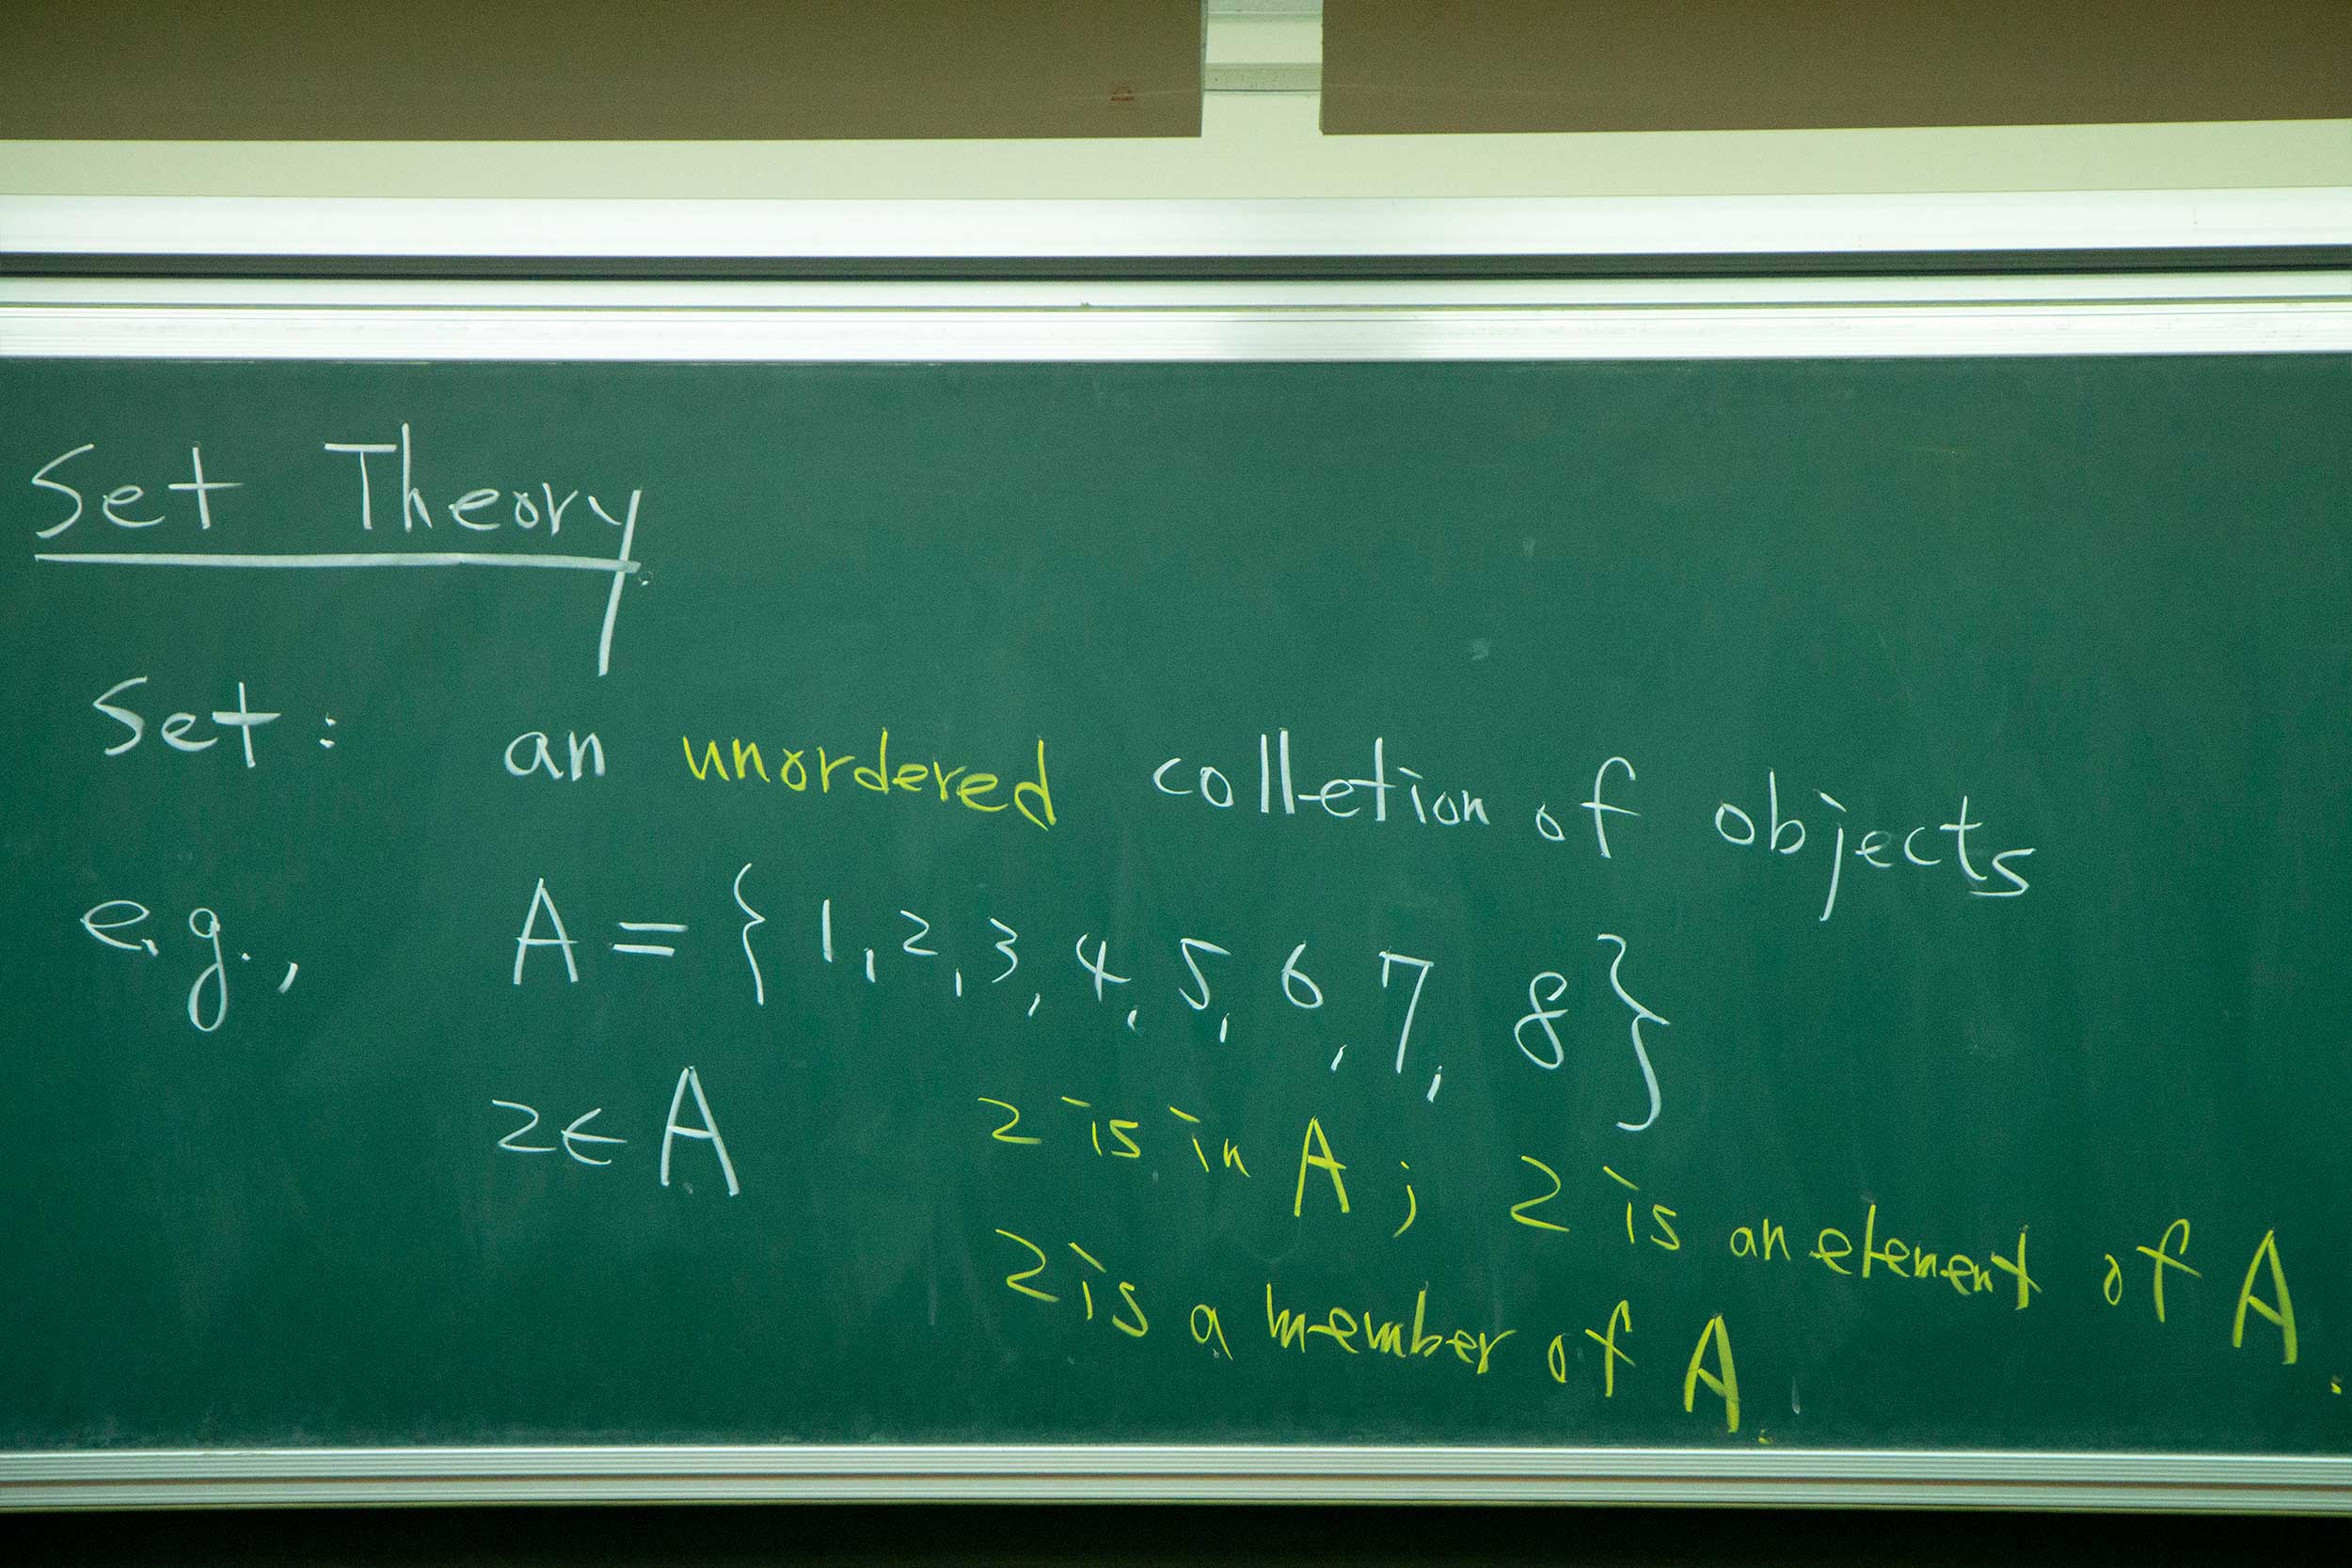 Set Theory
Set: an unordered colletion of objects
e.g., A = { 1, 2, 3, 4, 5, 6, 7, 8 }
2 ∈ A 2 is in A ; 2 is an element of A.
2 is a member of A.